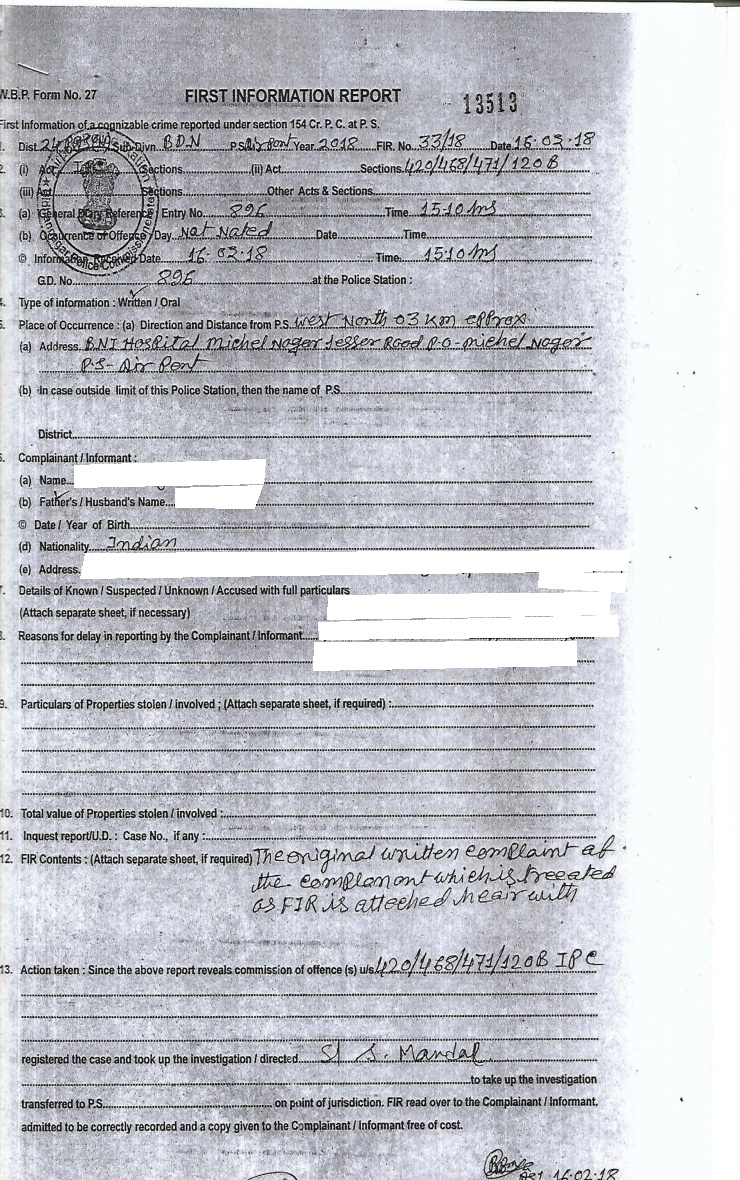 W.B.P. Form No. 27
FIRST INFORMATION REPORT
13513
First Information of a cognizable crime reported under section 154 Cr. P. C. at P. S.
Dist. 24 Sub-Divn. B.D.N P.S. Air Port Year 2018 FIR. No. 33/18 Date 16.03.18
2. (i) Act Sections (ii) Act Sections 420/468/471/120B
(iii) Act Sections Other Acts & Sections
(a) General Diary Reference: Entry No. 896 Time 15.10 hrs
(b) Occurrence of Offence: Day Not Noted Date Time
© Information Received Date 16.03.18 Time: 15.10 hrs
G.D. No. 896 at the Police Station :
Type of information : Written / Oral
Place of Occurrence : (a) Direction and Distance from P.S. West North 03 Km approx
(a) Address BNI Hospital Michel Nagar Jessor Road P.O- Michel Nagar
P.S- Air Port
(b) In case outside limit of this Police Station, then the name of P.S.
District
Complainant / Informant :
(a) Name
(b) Father's / Husband's Name
© Date / Year of Birth
(d) Nationality Indian
(e) Address
Details of Known / Suspected / Unknown / Accused with full particulars
(Attach separate sheet, if necessary)
Reasons for delay in reporting by the Complainant / Informant
9. Particulars of Properties stolen / involved ; (Attach separate sheet, if required) :
10. Total value of Properties stolen / involved :
11. Inquest report/U.D. : Case No., if any :
12. FIR Contents : (Attach separate sheet, if required) The original written complaint of
the complanant which is treeated
as FIR is atteched hearwith
13. Action taken : Since the above report reveals commission of offence (s) u/s 420/468/471/120B IPC
registered the case and took up the investigation / directed SI S. Mandal
to take up the investigation
transferred to P.S. on point of jurisdiction. FIR read over to the Complainant / Informant,
admitted to be correctly recorded and a copy given to the Complainant / Informant free of cost.